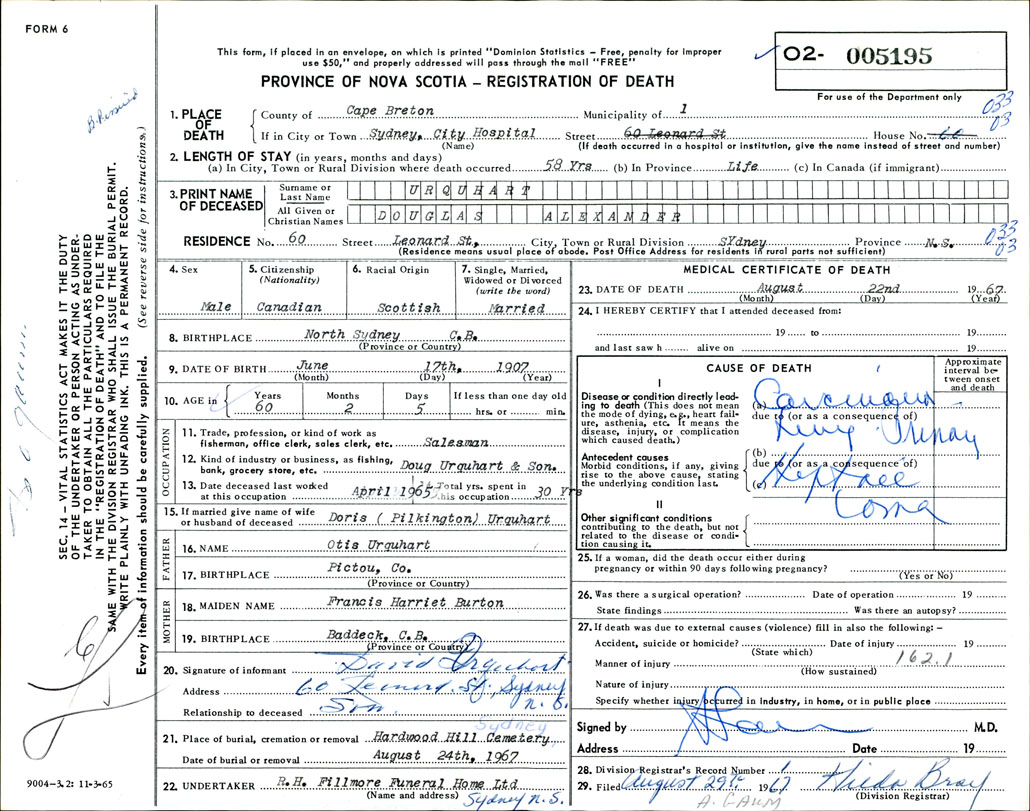 FORM 6
This form, if placed in an envelope, on which is printed "Dominion Statistics – Free, penalty for improper
use $50," and properly addressed will pass through the mail "FREE"
O2- 005195
For use of the Department only
PROVINCE OF NOVA SCOTIA – REGISTRATION OF DEATH
033
03
1. PLACE OF DEATH
County of Cape Breton Municipality of 1
If in City or Town Sydney, City Hospital Street 60 Leonard St House No. 60
(Name) (If death occurred in a hospital or institution, give the name instead of street and number)
2. LENGTH OF STAY (in years, months and days)
(a) In City, Town or Rural Division where death occurred 58 Yrs (b) In Province Life (c) In Canada (if immigrant)
3. PRINT NAME OF DECEASED
Surname or Last Name URQUHART
All Given or Christian Names DOUGLAS ALEXANDER
RESIDENCE No. 60 Street Leonard St, City, Town or Rural Division SYdney Province N.S.
033
03
(Residence means usual place of abode. Post Office Address for residents in rural parts not sufficient)
4. Sex
Male
5. Citizenship
(Nationality)
Canadian
6. Racial Origin
Scottish
7. Single, Married,
Widowed or Divorced
(write the word)
Married
8. BIRTHPLACE North Sydney C.B.
(Province or Country)
9. DATE OF BIRTH June 17th, 1907
(Month) (Day) (Year)
10. AGE in
Years Months Days If less than one day old
60 2 5 hrs. or min.
OCCUPATION
11. Trade, profession, or kind of work as
fisherman, office clerk, sales clerk, etc. Salesman
12. Kind of industry or business, as fishing,
bank, grocery store, etc. Doug Urquhart & Son.
13. Date deceased last worked
at this occupation April 1965
Total yrs. spent in
this occupation 30 Yrs
15. If married give name of wife
or husband of deceased Doris ( Pilkington) Urquhart
FATHER
16. NAME Otis Urquhart
17. BIRTHPLACE Pictou, Co.
(Province or Country)
MOTHER
18. MAIDEN NAME Francis Harriet Burton
19. BIRTHPLACE Baddeck, C.B.
(Province or Country)
20. Signature of informant David Urquhart
Address 60 Leonard St, Sydney
N.S.
Relationship to deceased Son
Sydney
21. Place of burial, cremation or removal Hardwood Hill Cemetery
Date of burial or removal August 24th, 1967
22. UNDERTAKER R.H. Fillmore Funeral Home Ltd
(Name and address) Sydney N.S.
MEDICAL CERTIFICATE OF DEATH
23. DATE OF DEATH August 22nd 1967.
(Month) (Day) (Year)
24. I HEREBY CERTIFY that I attended deceased from:
19 to 19
and last saw h alive on 19
CAUSE OF DEATH
Approximate
interval be-
tween onset
and death
I
Disease or condition directly lead-
ing to death (This does not mean
the mode of dying, e.g., heart fail-
ure, asthenia, etc. It means the
disease, injury, or complication
which caused death.)
(a) Carcinoma
due to (or as a consequence of)
Antecedent causes
Morbid conditions, if any, giving
rise to the above cause, stating
the underlying condition last.
(b)
due to (or as a consequence of)
(c)
Coma
II
Other significant conditions
contributing to the death, but not
related to the disease or condi-
tion causing it.
25. If a woman, did the death occur either during
pregnancy or within 90 days following pregnancy?
(Yes or No)
26. Was there a surgical operation? Date of operation 19
State findings Was there an autopsy?
27. If death was due to external causes (violence) fill in also the following: –
Accident, suicide or homicide? Date of injury 19
(State which)
162.1
Manner of injury
(How sustained)
Nature of injury
Specify whether injury occurred in industry, in home, or in public place
Signed by M.D.
Address Date 19
28. Division Registrar's Record Number
29. Filed August 29th 1967 Hilda Bray
(Division Registrar)
A. GAUM
SEC. 14 – VITAL STATISTICS ACT MAKES IT THE DUTY
OF THE UNDERTAKER OR PERSON ACTING AS UNDER-
TAKER TO OBTAIN ALL THE PARTICULARS REQUIRED
IN THE "REGISTRATION OF DEATH" AND TO FILE THE
SAME WITH THE DIVISION REGISTRAR WHO SHALL ISSUE THE BURIAL PERMIT.
WRITE PLAINLY WITH UNFADING INK. THIS IS A PERMANENT RECORD.
Every item of information should be carefully supplied. (See reverse side for instructions.)
9004–3.2: 11-3-65